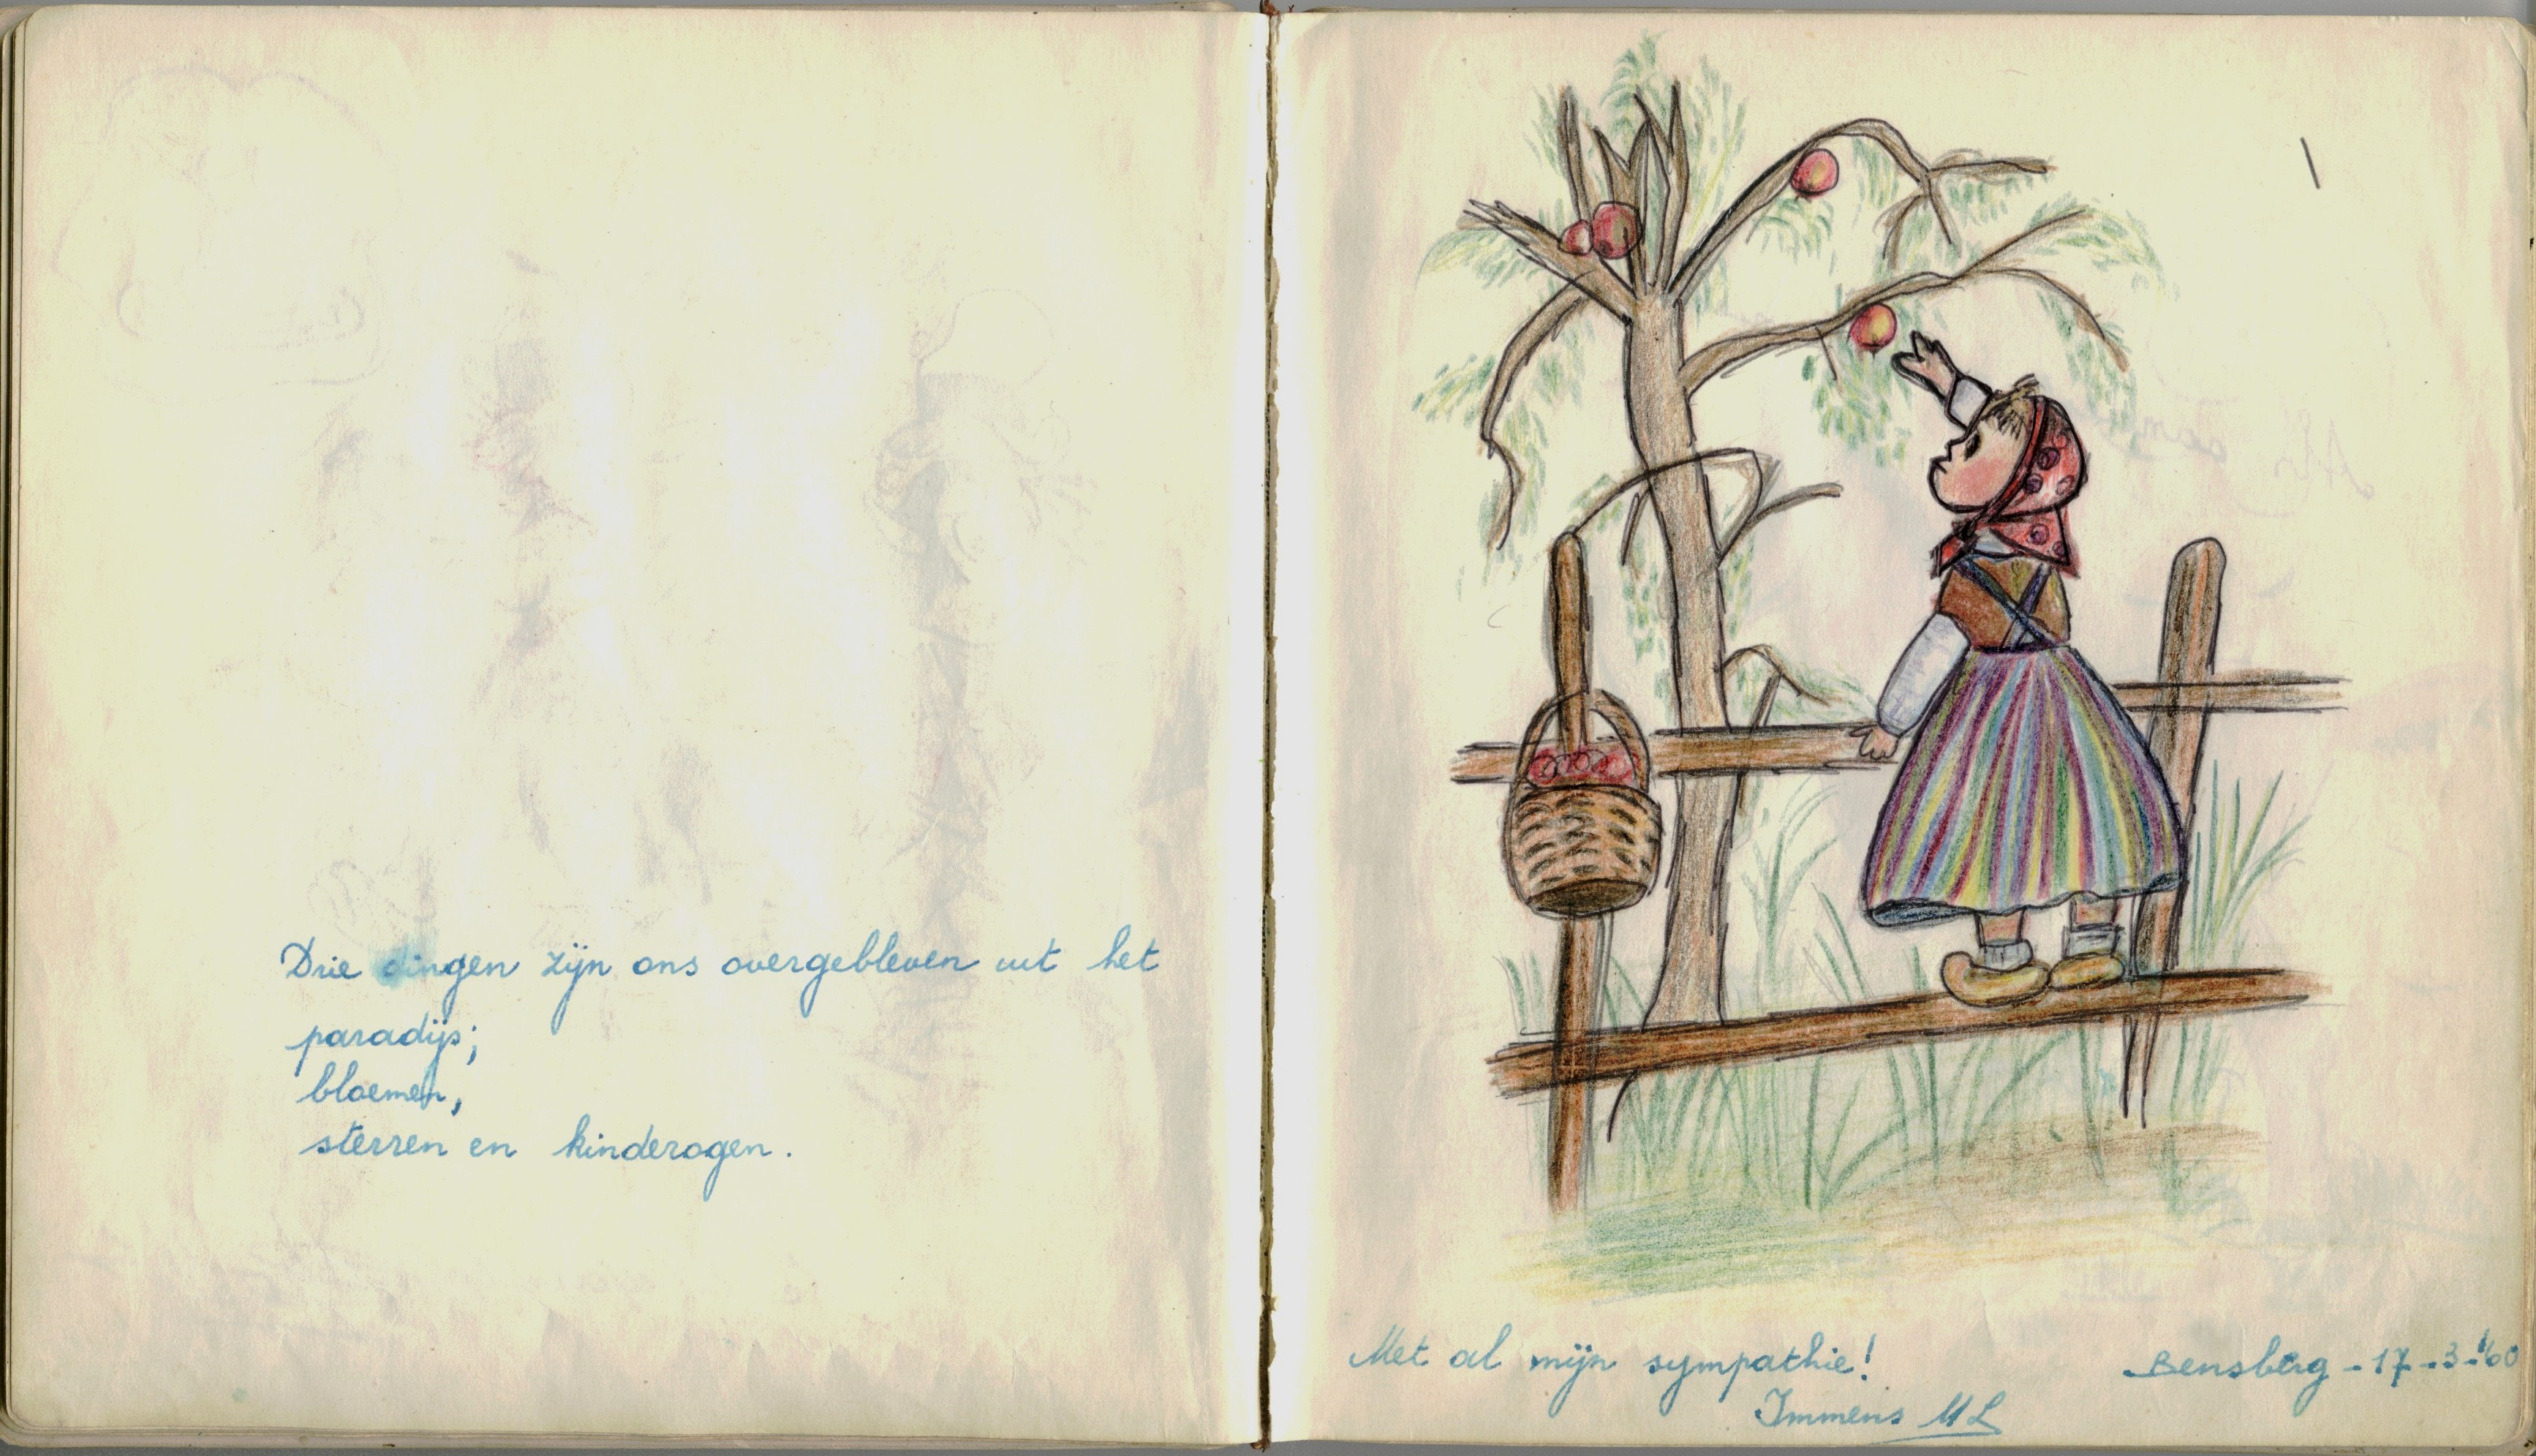 Drie dingen zijn ons overgebleven uit het
paradijs;
bloemen,
sterren en kinderogen.
Met al mijn sympathie!
Immens ML
Bensberg - 17 - 3 - '60